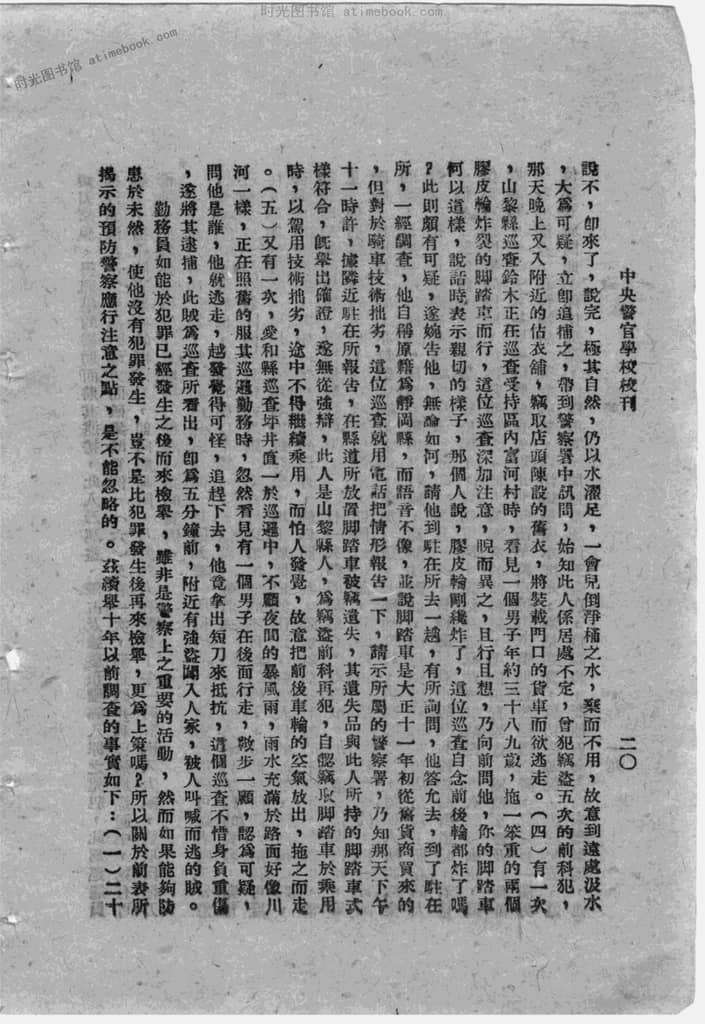 时光图书馆 atimebook.com
时光图书馆 atimebook.com
中央警官學校校刊
二〇
說不，卽來了，說完，極其自然，仍以水濯足，一會兒倒淨桶之水，棄而不用，故意到遠處汲水
，大爲可疑，立卽追捕之，帶到警察署中訊問，始知此人係居處不定，曾犯竊盜五次的前科犯，
那天晚上又入附近的估衣舖，竊取店頭陳設的舊衣，將裝載門口的貨車而欲逃走。（四）有一次
，山黎縣巡查鈴木正在巡查受持區內富河村時，看見一個男子年約三十八九歲，拖一笨重的兩個
膠皮輪炸裂的脚踏車而行，這位巡查深加注意，睨而異之，且行且想，乃向前問他，你的脚踏車
何以這樣，說話時表示親切的樣子，那個人說，膠皮輪剛纔炸了，這位巡查自念前後輪都炸了嗎
？此則頗有可疑，遂婉告他，無論如何，請他到駐在所去一趟，有所詢問，他答允去，到了駐在
所，一經調查，他自稱原籍爲靜岡縣，而語音不像，並說脚踏車是大正十一年初從舊貨商買來的
，但對於騎車技術拙劣，這位巡查就用電話把情形報告一下，請示所屬的警察署，乃知那天下午
十一時許，據隣近駐在所報告，在縣道所放置脚踏車被竊遺失，其遺失品與此人所持的脚踏車式
樣符合，旣舉出確證，遂無從強辯，此人是山黎縣人，爲竊盜前科再犯，自認竊取脚踏車於乘用
時，以駕用技術拙劣，途中不得繼續乘用，而怕人發覺，故意把前後車輪的空氣放出，拖之而走
。（五）又有一次，愛和縣巡查坪井直一於巡邏中，不顧夜間的暴風雨，雨水充滿於路面好像川
河一樣，正在照舊的服其巡邏勤務時，忽然看見有一個男子在後面行走，散步一顧，認爲可疑，
問他是誰，他就逃走，越發覺得可怪，追趕下去，他竟拿出短刀來抵抗，這個巡查不惜身負重傷
，遂將其逮捕，此賊爲巡查所看出，卽爲五分鐘前，附近有強盜闖入人家，被人叫喊而逃的賊。
勤務員如能於犯罪已經發生之後而來檢舉，雖非是警察上之重要的活動，然而如果能夠防
患於未然，使他沒有犯罪發生，豈不是比犯罪發生後再來檢舉，更爲上策嗎？所以關於前表所
揭示的預防警察應行注意之點，是不能忽略的。茲續舉十年以前調查的事實如下：（一）二十